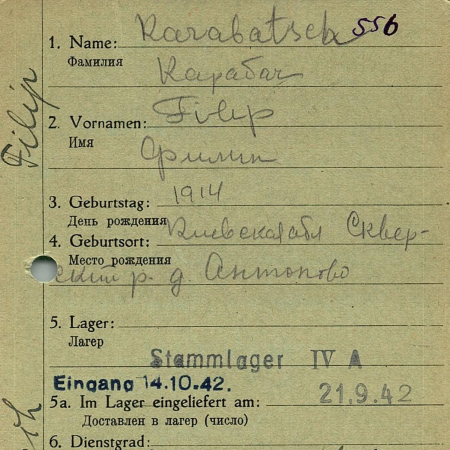 1. Name: Karabatsch 556
Фамилия Карабач
2. Vornamen: Filip
Имя Филип
3. Geburtstag: 1914
День рождения
4. Geburtsort: Киевская обл Сквер-
Место рождения
ский р. д. Антоново
5. Lager:
Лагер
Stammlager IV A
Eingang 14.10.42.
21.9.42
5a. Im Lager eingeliefert am:
Доставлен в лагер (число)
6. Dienstgrad:
Filip